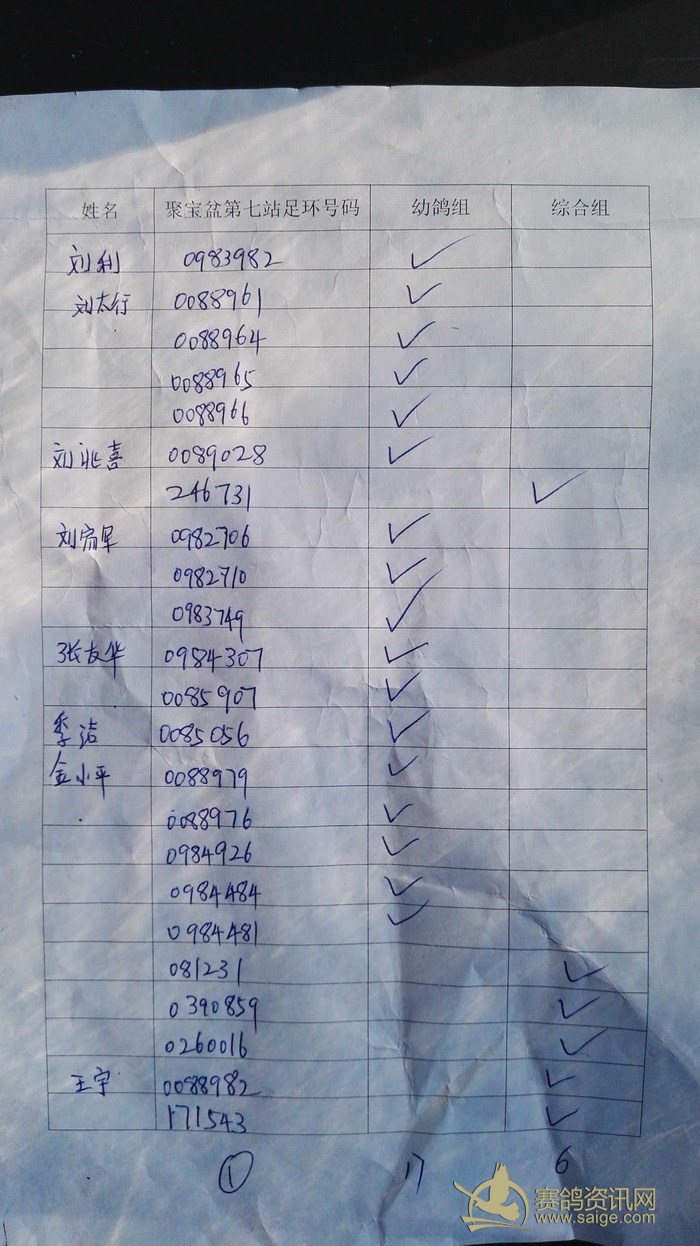 姓名 聚宝盆第七站足环号码 幼鸽组 综合组
刘利 0983982 ✓
刘太行 0088961 ✓
0088964 ✓
0088965 ✓
0088966 ✓
刘兆喜 0089028 ✓
246731 ✓
刘 0982706 ✓
0982710 ✓
0983749 ✓
张友华 0984307 ✓
0085907 ✓
季洁 0085056 ✓
金小平 0088979 ✓
0088976 ✓
0984926 ✓
0984484 ✓
0984481 ✓
081231 ✓
0390859 ✓
0260016 ✓
王宇 0088982 ✓
171543 ✓
① 17 6
赛鸽资讯网
www.saige.com